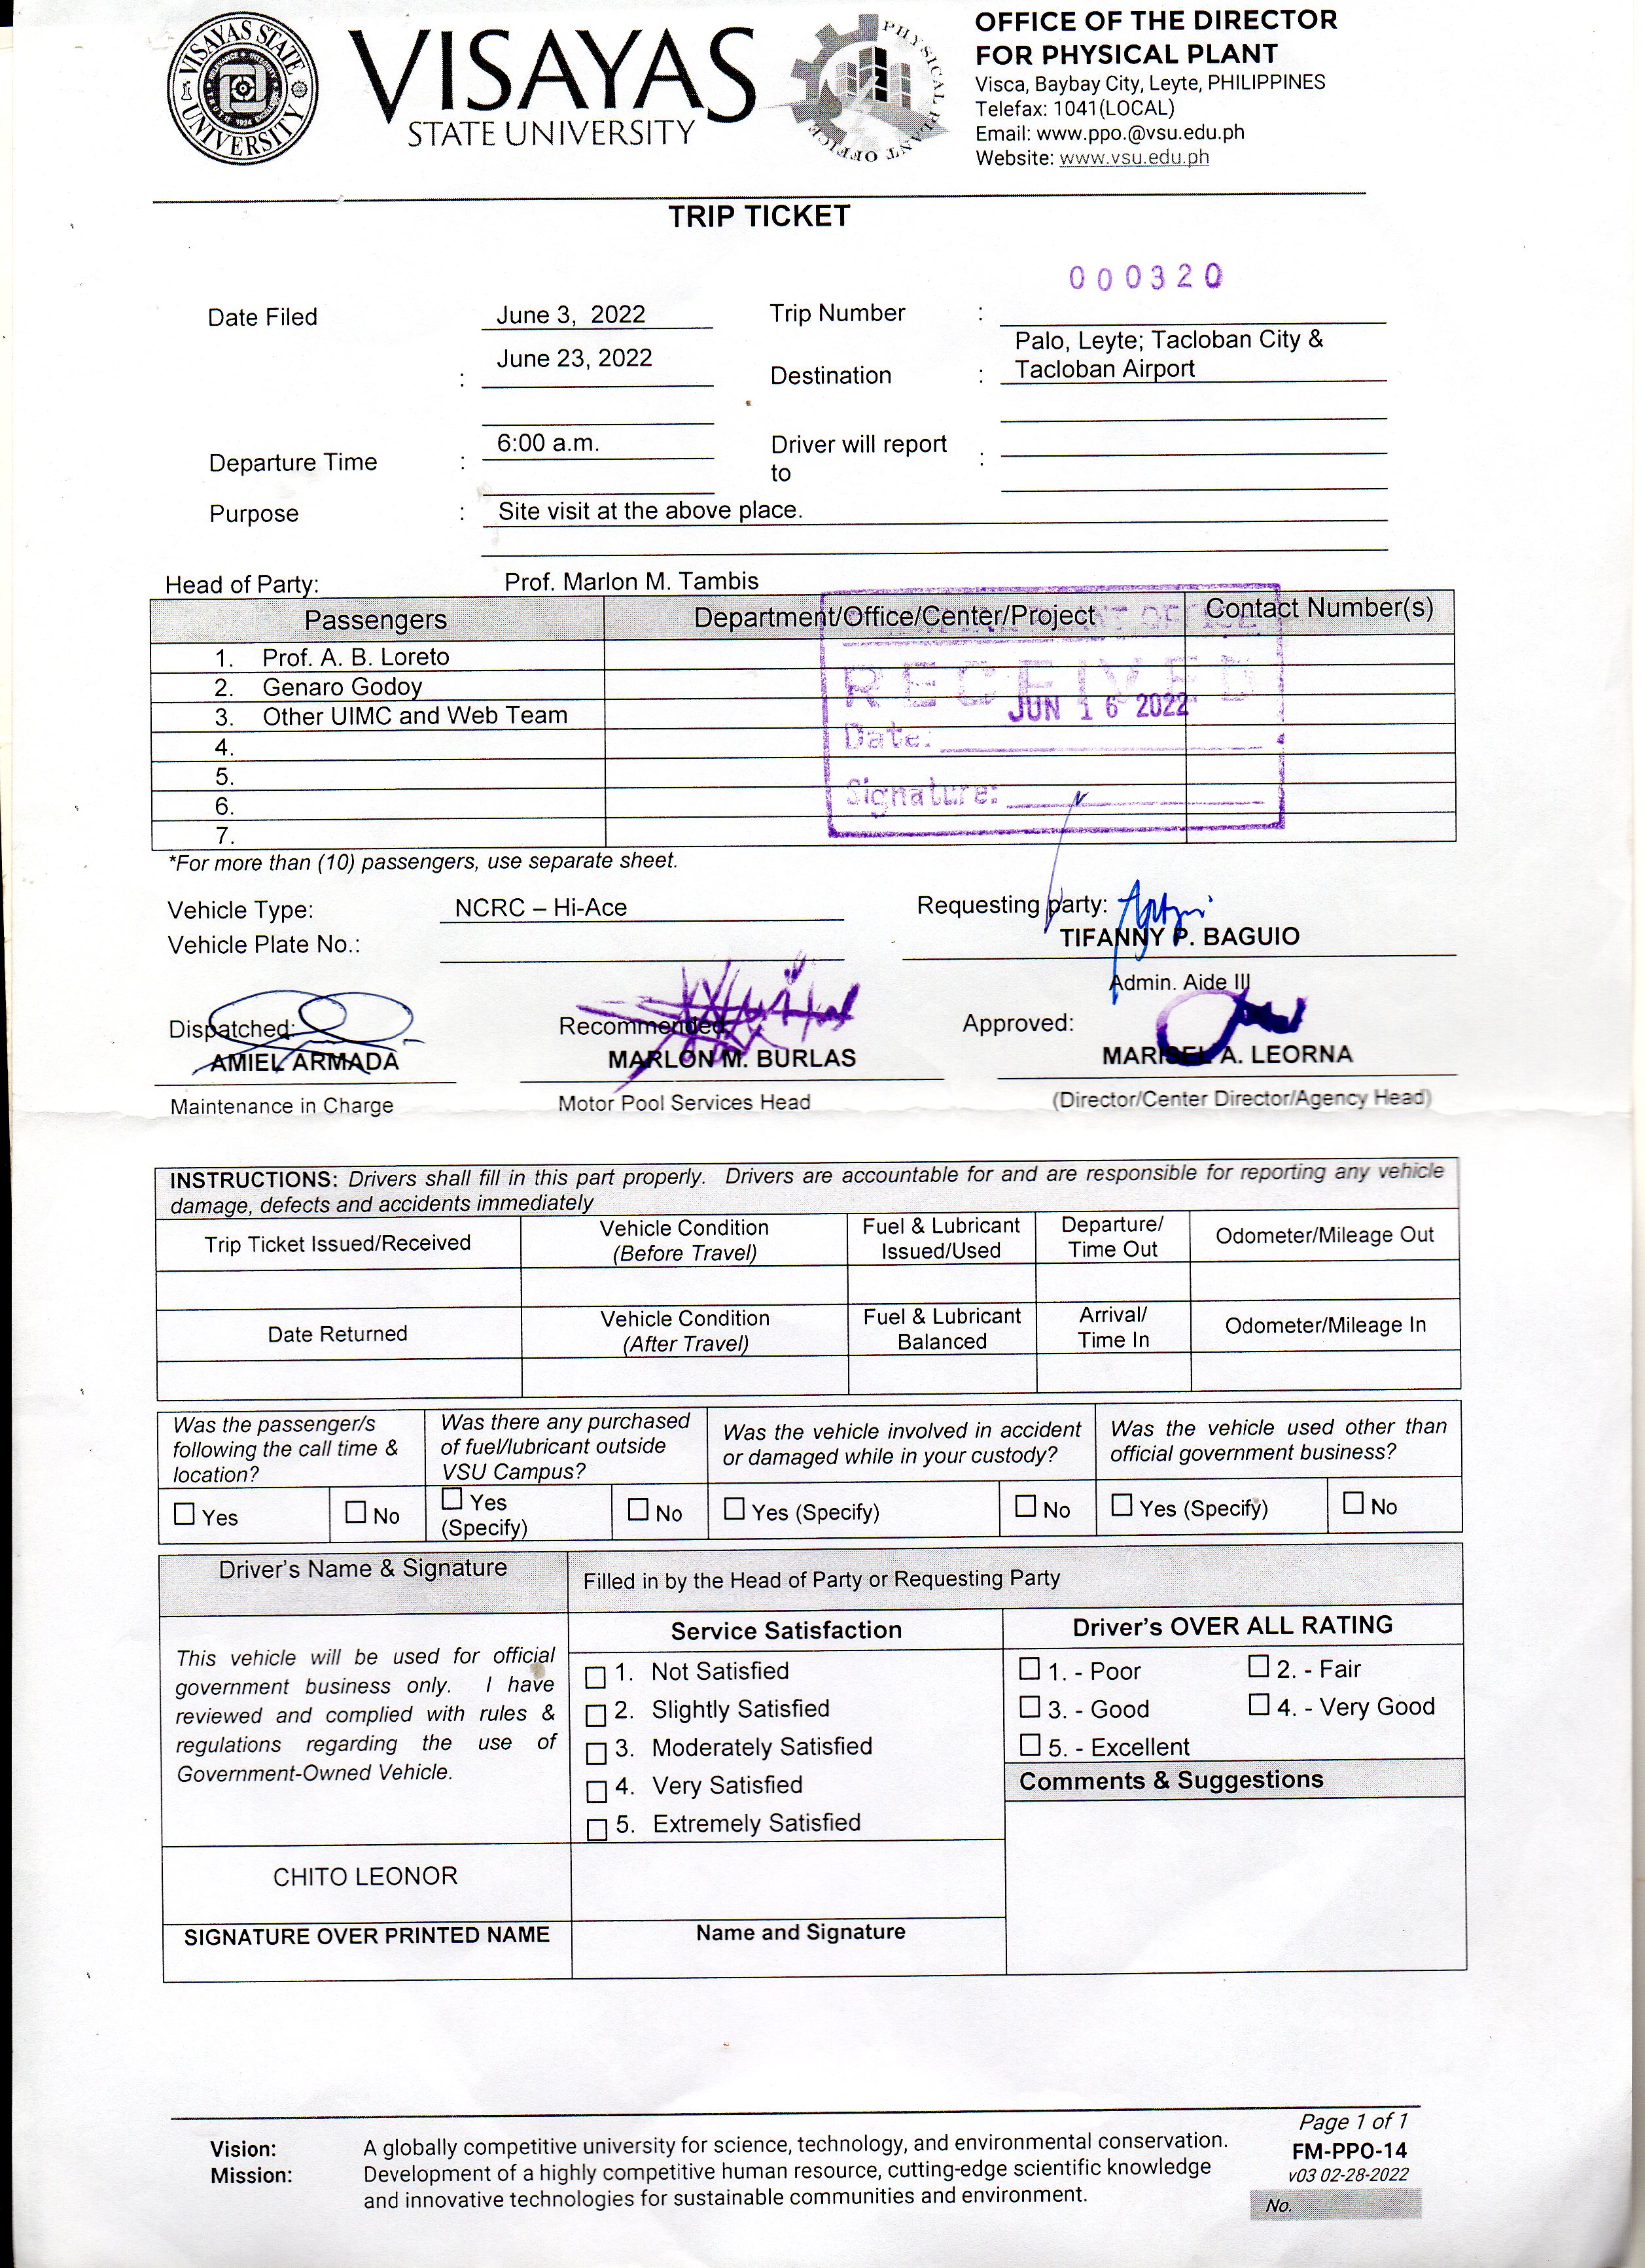 VISAYAS STATE UNIVERSITY
RELEVANCE INTEGRITY
1924
VISAYAS
STATE UNIVERSITY
PHYSICAL PLANT OFFICE
OFFICE OF THE DIRECTOR
FOR PHYSICAL PLANT
Visca, Baybay City, Leyte, PHILIPPINES
Telefax: 1041(LOCAL)
Email: www.ppo.@vsu.edu.ph
Website: www.vsu.edu.ph
TRIP TICKET
000320
Date Filed June 3, 2022 Trip Number :
June 23, 2022 Palo, Leyte; Tacloban City &
: Destination : Tacloban Airport
6:00 a.m. Driver will report
Departure Time : to :
Purpose : Site visit at the above place.
Head of Party: Prof. Marlon M. Tambis
Passengers Department/Office/Center/Project Contact Number(s)
1. Prof. A. B. Loreto
2. Genaro Godoy
3. Other UIMC and Web Team
4.
5.
6.
7.
RECEIVED
JUN 16 2022
Date:
Signature:
*For more than (10) passengers, use separate sheet.
Vehicle Type: NCRC – Hi-Ace Requesting party:
Vehicle Plate No.: TIFANNY P. BAGUIO
Admin. Aide III
Dispatched: Recommended: Approved:
AMIEL ARMADA MARLON M. BURLAS MARISEL A. LEORNA
Maintenance in Charge Motor Pool Services Head (Director/Center Director/Agency Head)
INSTRUCTIONS: Drivers shall fill in this part properly. Drivers are accountable for and are responsible for reporting any vehicle
damage, defects and accidents immediately
Trip Ticket Issued/Received Vehicle Condition (Before Travel) Fuel & Lubricant Issued/Used Departure/ Time Out Odometer/Mileage Out
Date Returned Vehicle Condition (After Travel) Fuel & Lubricant Balanced Arrival/ Time In Odometer/Mileage In
Was the passenger/s following the call time & location? Was there any purchased of fuel/lubricant outside VSU Campus? Was the vehicle involved in accident or damaged while in your custody? Was the vehicle used other than official government business?
☐ Yes ☐ No ☐ Yes (Specify) ☐ No ☐ Yes (Specify) ☐ No ☐ Yes (Specify) ☐ No
Driver's Name & Signature Filled in by the Head of Party or Requesting Party
This vehicle will be used for official
government business only. I have
reviewed and complied with rules &
regulations regarding the use of
Government-Owned Vehicle.
Service Satisfaction
☐ 1. Not Satisfied
☐ 2. Slightly Satisfied
☐ 3. Moderately Satisfied
☐ 4. Very Satisfied
☐ 5. Extremely Satisfied
Driver's OVER ALL RATING
☐ 1. - Poor ☐ 2. - Fair
☐ 3. - Good ☐ 4. - Very Good
☐ 5. - Excellent
Comments & Suggestions
CHITO LEONOR
SIGNATURE OVER PRINTED NAME Name and Signature
Page 1 of 1
Vision: A globally competitive university for science, technology, and environmental conservation. FM-PPO-14
Mission: Development of a highly competitive human resource, cutting-edge scientific knowledge v03 02-28-2022
and innovative technologies for sustainable communities and environment.
No.